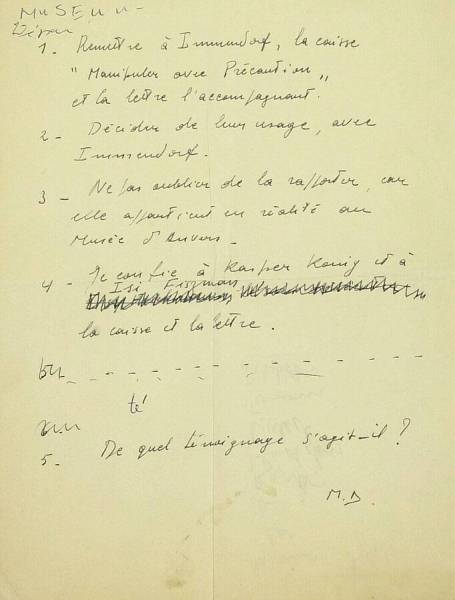 MUSEUM -
1 - Remettre à Immendorf, la caisse
"Manipuler avec Précaution"
et la lettre l'accompagnant.
2 - Décider de leur usage, avec
Immendorf.
3 - Ne pas oublier de la rapporter, car
elle appartient en réalité au
Musée d'Anvers -
4 - Je confie à Kasper Konig et à
Isi Fiszman
la caisse et la lettre.
té
5 - De quel témoignage s'agit-il ?
M.B